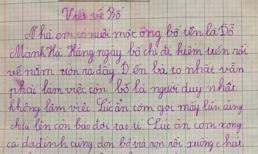 Viết về Bố
Nhà em có nuôi một ông bố tên là Đỗ
Mạnh Hà. Hằng ngày bố chỉ đi kiếm rồi
về nằm ra đấy. Đến bà to nhất vẫn
phải làm việc còn bố là người duy nhất
không làm việc. Lúc ăn cơm gọi mấy lần cũng
chưa lên còn bảo đợi tao tí. Lúc ăn cơm xong
cả gia đình cùng dọn bố vừa rồi xuống